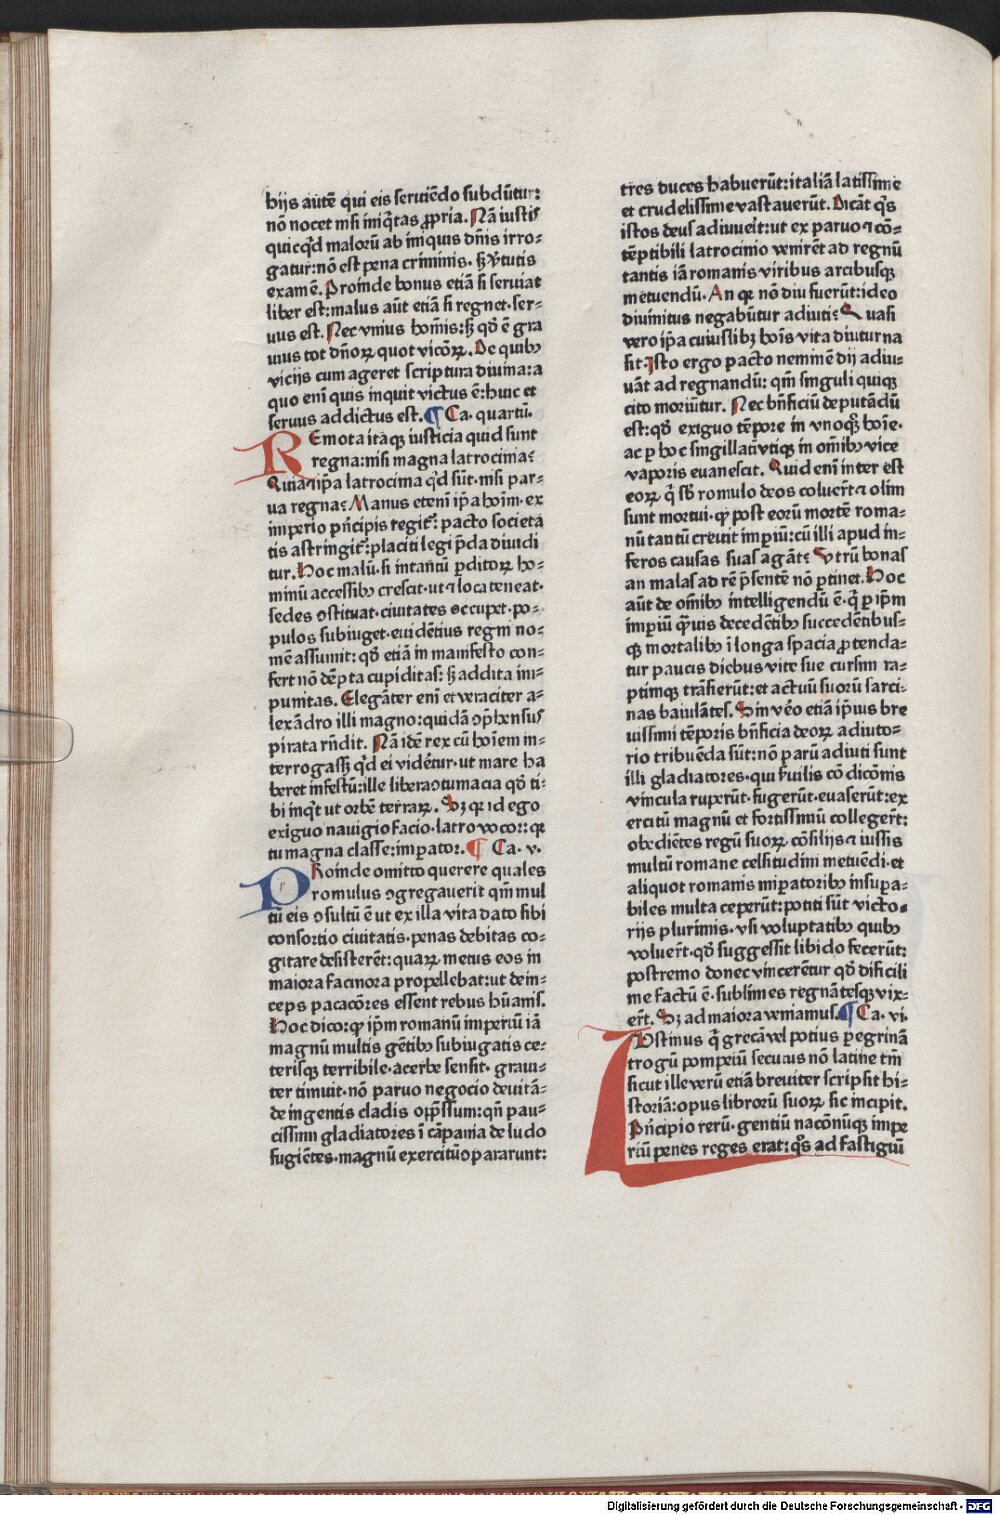 hijs autē qui eis seruiēdo subdūtur:
nō nocet nisi iniq̄tas ꝓpria. Nā iustis
quicq̄d malorū ab iniquis dn̄is irro-
gatur:nō est pena criminis. sꝫ v̄tutis
examē. Proinde bonus etiā si seruiat
liber est:malus aūt etiā si regnet. ser-
uus est. Nec vnius hoīnis:sꝫ qd̄ ē gra
uius tot dn̄oꝝ quot vicōꝝ. De quibꝰ
vicijs cum ageret scriptura diuina:a
quo enī quis inquit victus ē:huic et
seruus addictus est. ¶ Ca. quartū.
REmota itaqꝫ iusticia quid sunt
regna:nisi magna latrocinia?
Quia ⁊ ip̄a latrocinia q̄d sūt. nisi par-
ua regna? Manus etenī ip̄a hoīm. ex
imperio pn̄cipis regit᷑: pacto societa
tis astringit᷑:placiti legi p̄da diuidi
tur. Hoc malū. si in tantū ꝑditoꝝ ho-
minū accessibꝰ crescit. vt ⁊ loca teneat.
sedes ꝯstituat. ciuitates occupet. po-
pulos subiuget. euidētius regni no-
mē assumit: qd̄ etiā in manifesto con-
fert nō dēpta cupiditas: sꝫ addita im-
punitas. Elegāter enī et veraciter a-
lexādro illi magno: quidā ꝯp̄hensus
pirata rn̄dit. Nā idē rex cū hoīem in-
terrogassꝫ q̄d ei videt᷑ur. vt mare ha
beret infestū:ille libera ꝯtumacia qd̄ ti-
bi inq̄t vt orbē terraꝝ. Sꝫ qꝛ id ego
exiguo nauigio facio. latro vocor: qꝛ
tu magna classe:imꝑator. ¶ Ca. v.
PRoinde omitto querere quales
romulus ꝯgregauerit qm̄ mul
tū eis ꝯsultū ē vt ex illa vita dato sibi
consortio ciuitatis. penas debitas co-
gitare desisterēt:quaꝝ metus eos in
maiora facinora propellebat:vt dein-
ceps pacacōres essent rebus hūanis.
Hoc dico:qꝙ ip̄m romanū imperiū iā
magnū multis gētibꝰ subiugatis ce-
terisqꝫ terribile. acerbe sensit. graui-
ter timuit. nō paruo negocio deuitā-
de ingentis cladis oꝑp̄ssum:qn̄ pau-
cissimi gladiatores ī cāpania de ludo
fugiētes. magnū exercitū ꝯꝑararunt:
tres duces habuerūt:italiā latissime
et crudelissime vastauerūt. Dicāt q̄s
istos deus adiuueīt:vt ex paruo ⁊ cō-
tēptibili latrocinio venirēt ad regnū
tantis iā romanis viribus arcibusqꝫ
metuendū. An qꝛ nō diu fuerūt:ideo
diuinitus negabūtur adiuti? Quasi
vero ip̄a cuiuslibꝫ hoīs vita diuturna
sit. Isto ergo pacto neminē dij adiu-
uāt ad regnandū: qm̄ singuli quiqꝫ
cito moriūtur. Nec bn̄ficiū deputādū
est:qd̄ exiguo tēpore in vnoqꝫ hoīe.
ac ꝑ hoc singillati vtiqꝫ in om̄ibꝰ vice
vaporis euanescit. Quid enī interest
eoꝝ q̄ sb̄ romulo deos coluer̄t ⁊ olim
sunt mortui. qꝙ post eorū mortē roma-
nū tantū creuit imꝑiū:cū illi apud in-
feros causas suas agāt? Vtrū bonas
an malas ad rē p̄sentē nō ꝑtinet. Hoc
aūt de om̄ibꝰ intelligendū ē. q̄ ꝑ ip̄m
imꝑiū q̄uis decedētibꝰ succedētibus-
qꝫ mortalibꝰ ī longa spacia ꝓtenda-
tur paucis diebus vite sue cursim ra-
ptimqꝫ trāsierūt:et actuū suorū sarci-
nas baiulātes. Sin v̄o etiā ip̄ius bre
uissimi tēporis bn̄ficia deoꝝ adiuto-
rio tribuēda sūt:nō parū adiuti sunt
illi gladiatores. qui s̄uilis cōdicōnis
vincula ruperūt. fugerūt. euaserūt:ex
ercitū magnū et fortissimū colleger̄t:
obediētes regū suoꝝ cōsilijs ⁊ iussis
multū romane celsitudini metuēdi. et
aliquot romanis imꝑatoribꝰ insuꝑa-
biles multa ceperūt:potiti sūt victo-
rijs plurimis. vsi voluptatibꝰ quibꝰ
voluer̄t. qd̄ suggessit libido fecerūt:
postremo donec vincerētur qd̄ dificili
me factū ē. sublimes regnātesqꝫ vix-
er̄t. Sꝫ ad maiora veniamus. ¶ Ca. vi.
IUstinus q̄ grecā vel potius ꝑegrinā
trogū pompeiū secutus nō latine tm̄
sicut ille verū etiā breuiter scripsit hi-
storiā:opus librorū suoꝝ sic incipit.
Pn̄cipio rerū. gentiū nacōnūqꝫ impe
riū penes reges erat: q̄s ad fastigiū
Digitalisierung gefördert durch die Deutsche Forschungsgemeinschaft - DFG